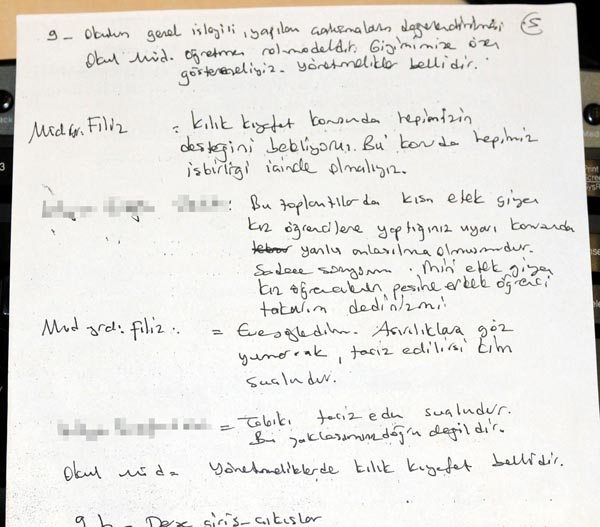 9- Okulun genel işleyişi, yapılan çalışmaların değerlendirilmesi 5
Okul Müd. öğretmen rolmodeldir. Giyimimize özen
göstermeliyiz. Yönetmelikler bellidir.
Müd. Filiz = Kılık kıyafet konusunda hepimizin
desteğini bekliyorum. Bu konuda hepimiz
işbirliği içinde olmalıyız.
: Bu toplantılarda kısa etek giyen
kız öğrencilere yaptığınız uyarı konusunda
yanlış anlaşılma olmuşmudur.
Sadece soruyorum. Mini etek giyen
kız öğrencilerin peşine erkek öğrenci
takarım dedinizmi?
Müd yrd. Filiz : = Evet söyledim. Aşırılıklara göz
yumarak, taciz edilirse kim
suçludur.
= Tabiki taciz eden suçludur.
Bu yaklaşımınız doğru değildir.
Okul Müd. Yönetmeliklerde kılık kıyafet bellidir.
9 b - Derse giriş-çıkışlar